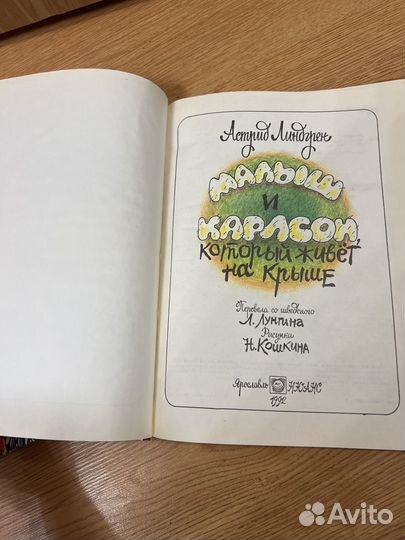 Астрид Линдгрен
МАЛЫШ
И
КАРЛСОН,
который живёт
на крыше
Перевела со шведского
Л. Лунгина
Рисунки
Н. Кошкина
Ярославль НЮАНС
1992
Avito